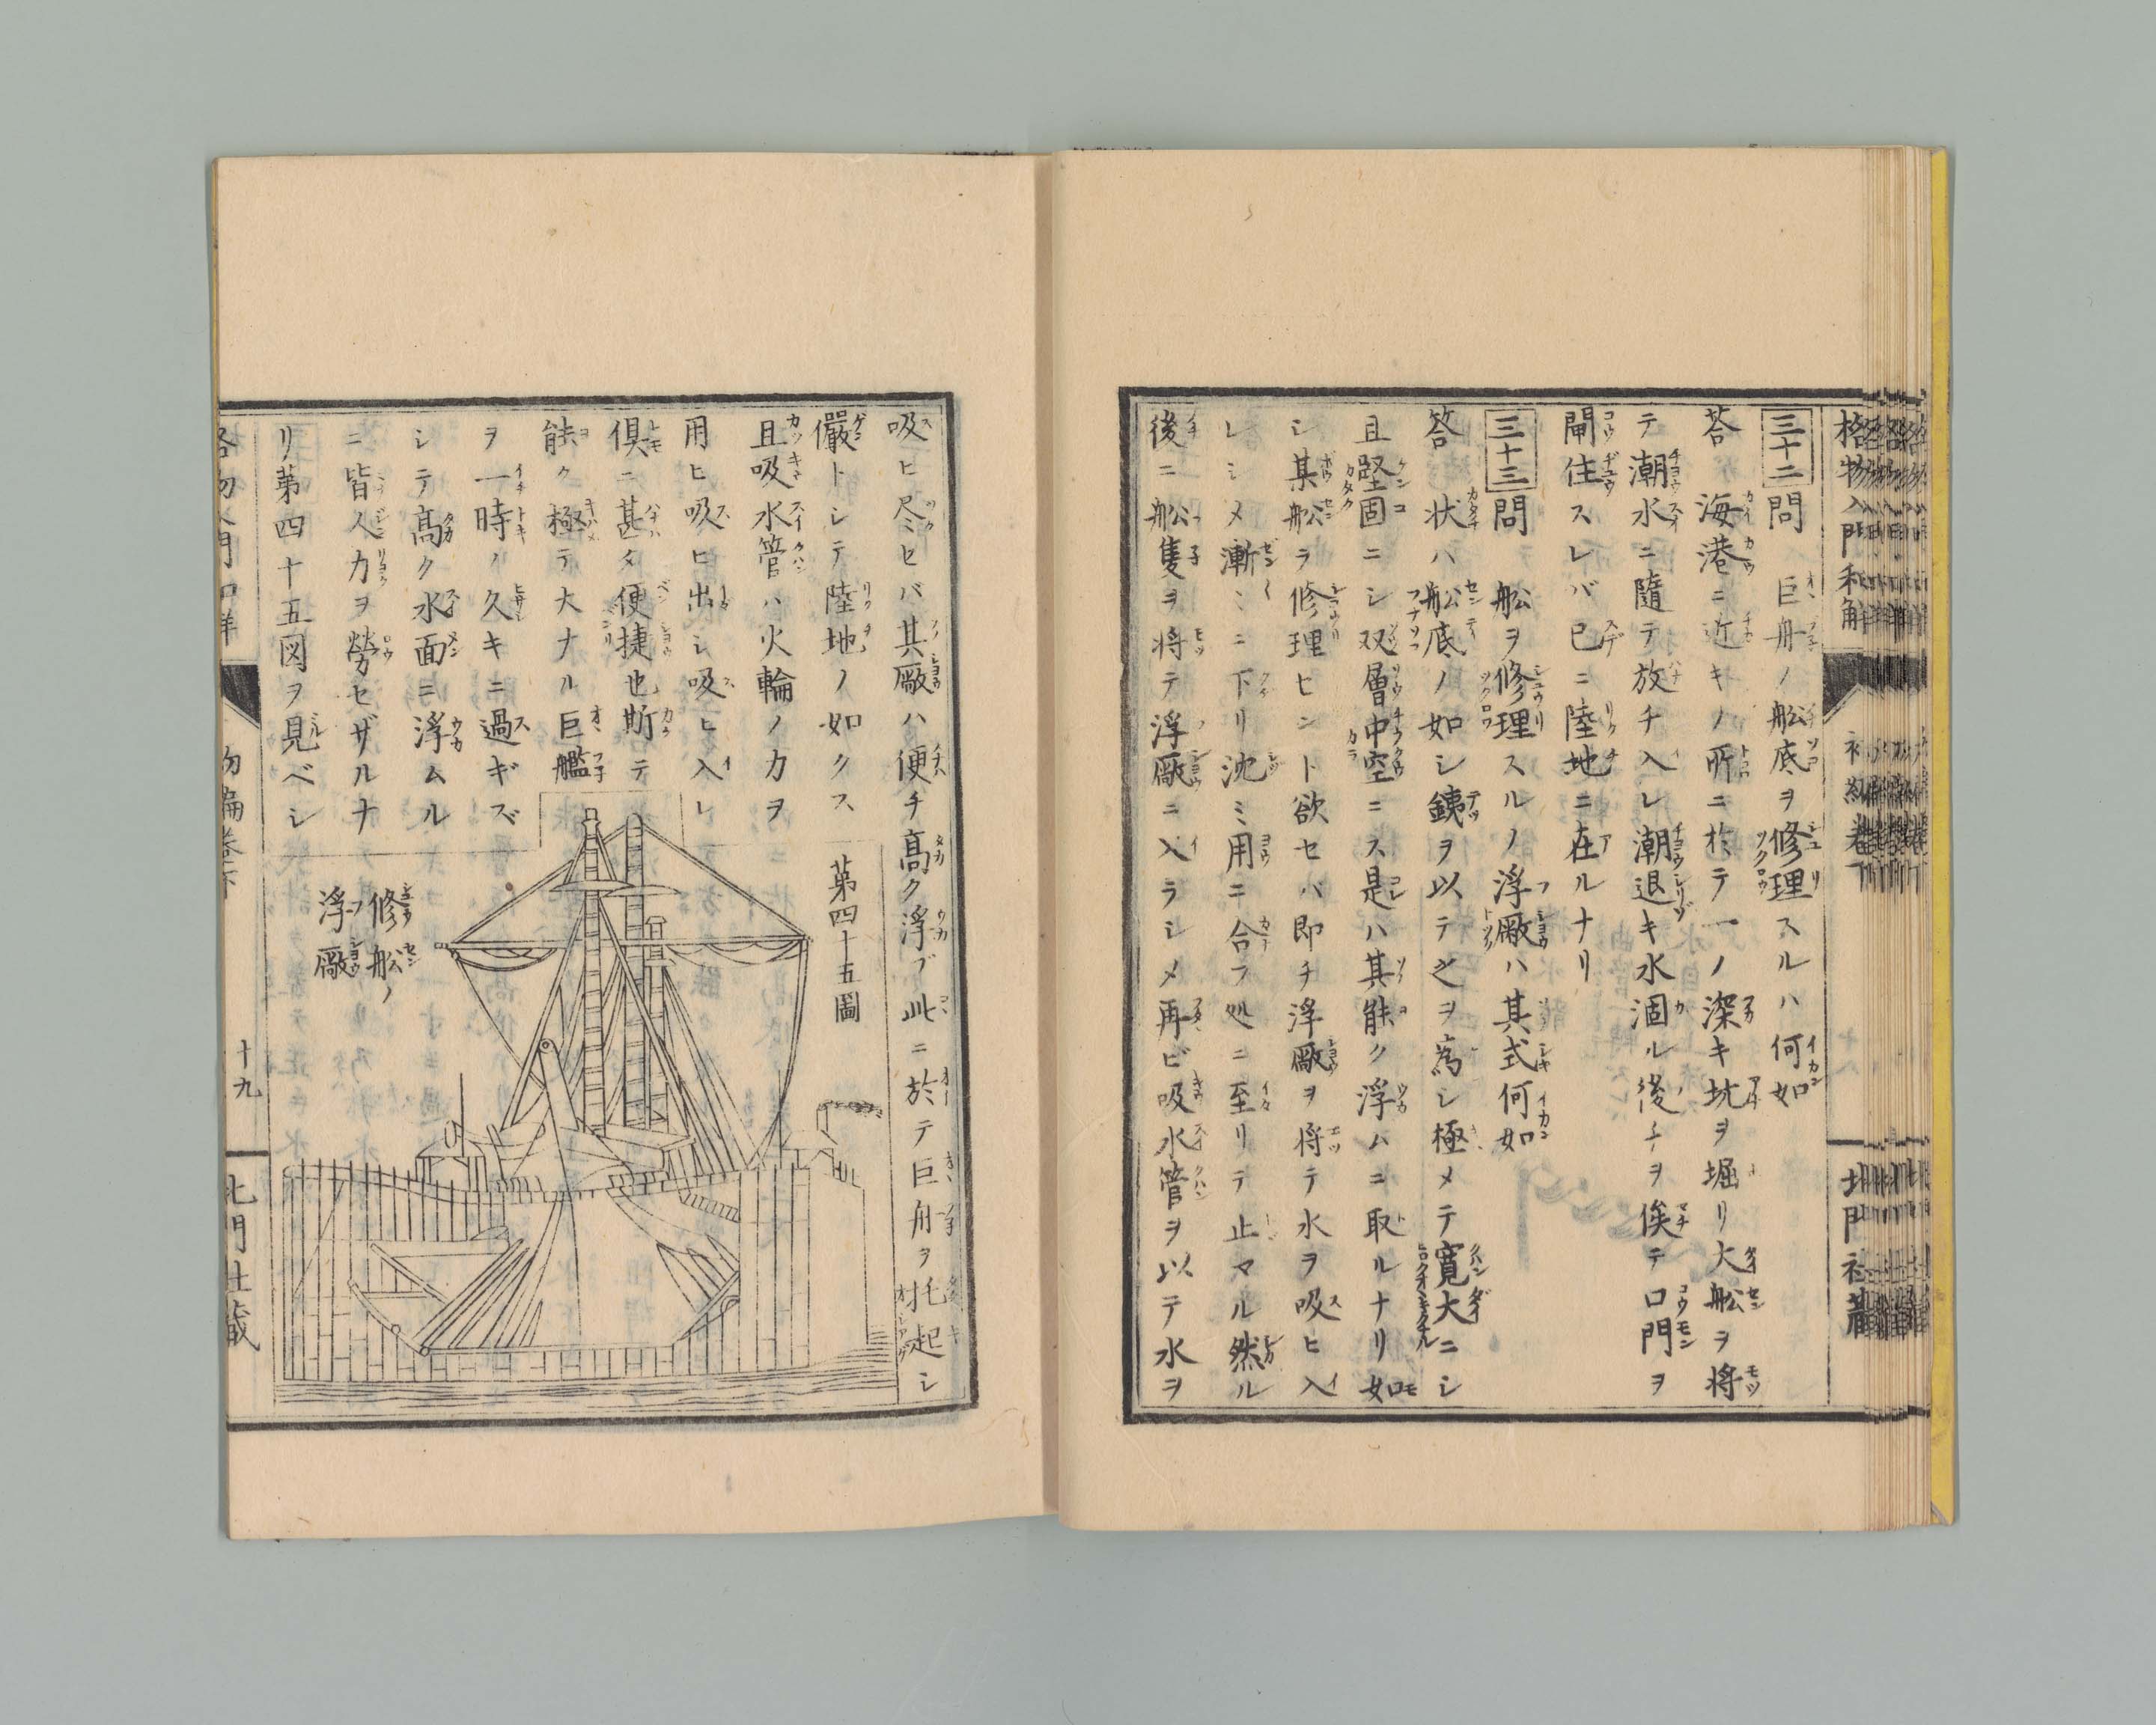 格物入門和解
初編巻下
北門社蔵
三十二 問 巨舟ノ船底ヲ修理スルハ何如
答 海港ニ近キノ所ニ於テ一ノ深キ坑ヲ堀リ大船ヲ将
テ潮水ニ隨テ放チ入レ潮退キ水涸ル後チヲ俟テ口門ヲ
閘住スレバ已ニ陸地ニ在ルナリ
三十三 問 船ヲ修理スルノ浮廠ハ其式何如
答 状ハ船底ノ如シ銕ヲ以テ之ヲ為シ極メテ寛大ニシ
且堅固ニシ双層中空ニス是ハ其能ク浮ムニ取ルナリ如
シ某船ラ修理ヒント欲セバ即チ浮廠ヲ将テ水ヲ吸ヒ入
レシメ漸〻ニ下リ沈ミ用ニ合フ処ニ至リテ止マル然ル
後ニ船隻ヲ将テ浮廠ニ入ラシメ再ビ吸水管ヲ以テ水ヲ
吸ヒ尽セバ其廠ハ便チ高ク浮ブ此ニ於テ巨舟ヲ托起シ
儼トシテ陸地ノ如クス
且吸水管ハ火輪ノカヲ
用ヒ吸ヒ出シ吸ヒ入レ
倶ニ甚タ便捷也斯テ
能ク極テ大ナル巨艦
ヲ一時ノ久キニ過ギズ
シテ高ク水面ニ浮ムル
ニ皆人力ヲ勞セザルナ
リ第四十五図ヲ見ベシ
第四十五圖
修船ノ
浮廠
十九